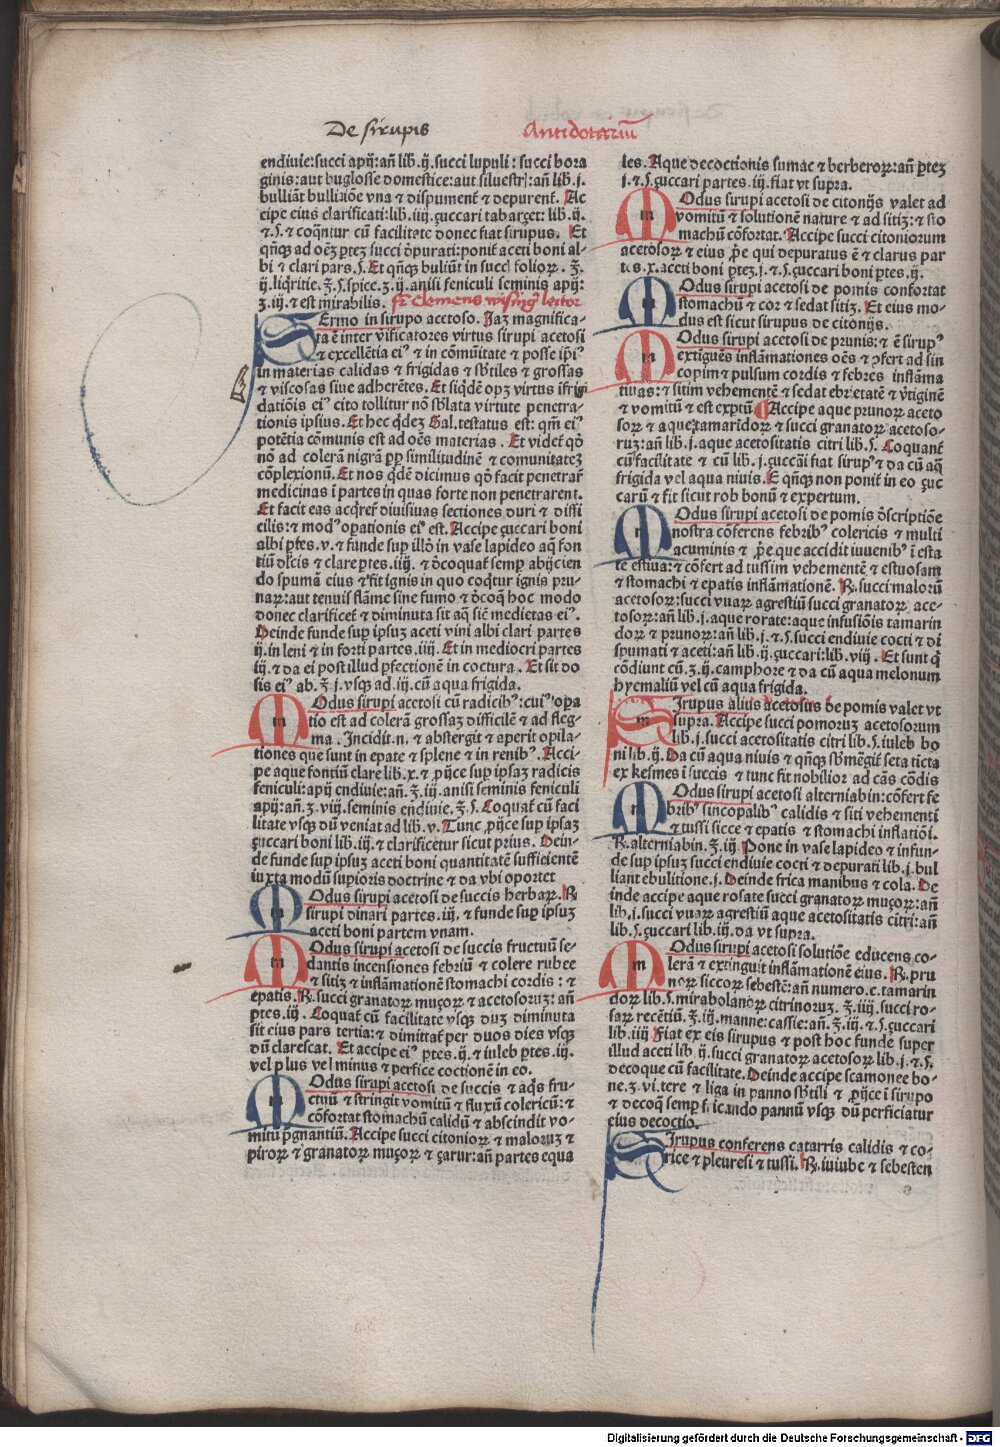 De sirupis
Antidotariũ
endiuie: succi apij: añ lib. ij. succi lupuli: succi bora
ginis: aut buglosse domestice: aut siluestꝛ: añ lib. j.
bulliãt bulliõe vna ⁊ dispument̃ ⁊ depurent̃. Ac
cipe eius clarificati: lib. iiij. çuccari tabarçet: lib. ij.
⁊.S. ⁊ coq̃ntur cũ facilitate donec fiat sirupus. Et
qñq̃ ad oẽȝ ptẽȝ succi ð̃purati: ponit̃ aceti boni al-
bi ⁊ clari pars .S. Et qñq̃ buliũt in succ̃ folioꝝ. ℥.
ij. liq̃ritie. ℥.S. spice. ʒ. ij. anisi feniculi seminis apij:
ʒ. iij. ⁊ est mirabilis. fr̃ Clemens lector
SErmo in sirupo acetoso. Jaȝ magnifica-
ta ẽ inter v̾ificatores virtus sirupi acetosi
⁊ excellẽtia ei⁹ ⁊ in cõmũitate ⁊ posse ip̃i⁹
in materias calidas ⁊ frigidas ⁊ sb̾tiles ⁊ grossas
⁊ viscosas siue adherẽtes. Et siq̃dẽ opȝ virtus ĩfrig
datiõis ei⁹ cito tollitur nõ sb̾lata virtute penetra-
tionis ipsius. Et hec q̃deȝ Gal. testatus est: qm̃ ei⁹
potẽtia cõmunis est ad oẽs materias. Et videt̃ qð
nõ ad colerã nigrã pp̃ similitudinẽ ⁊ comunitateȝ
cõplexionũ. Et nos q̃dẽ dicimus qð facit penetrar̃
medicinas ĩ partes in quas forte non penetrarent.
Et facit eas acq̃rer̃ diuisiuas sectiones duri ⁊ diffi
cilis: ⁊ mod⁹ opationis ei⁹ est. Accipe çuccari boni
albi ptes. v. ⁊ funde sup illð in vase lapideo aq̃ fon
tiũ dl̾cis ⁊ clare ptes. iiij. ⁊ ðcoquat̃ semp abijcien
do spumã eius ⁊ fit ignis in quo coq̃tur ignis pru-
naꝝ: aut tenuis flãme sine fumo ⁊ ðcoq̃ hoc modo
donec clarificet̃ ⁊ diminuta sit aq̃ sic̃ medietas ei⁹.
Deinde funde sup ipsuȝ aceti vini albi clari partes
ij. in leni ⁊ in forti partes. iiij. Et in mediocri partes
iij. ⁊ da ei post illud pfectionẽ in coctura. Et sit do
sis ei⁹ ab. ℥. j. vsq̃ ad. iij. cũ aqua frigida.
MOdus sirupi acetosi cũ radicib⁹: cui⁹ opa
tio est ad colerã grossaȝ difficilẽ ⁊ ad fleg-
ma. Incidit. n. ⁊ abstergit ⁊ aperit opila-
tiones que sunt in epate ⁊ splene ⁊ in renib⁹. Acci-
pe aque fontiũ clare lib. x. ⁊ pijce sup ipsaȝ radicis
feniculi: apij endiuie: añ. ℥. iij. anisi seminis feniculi
apij: añ. ʒ. viij. seminis endiuie. ℥.S. Coquat̃ cũ faci
litate vsq̃ dũ veniat ad lib. v. Tunc pijce sup ipsaȝ
çuccari boni lib. iij. ⁊ clarificetur sicut prius. Dein-
de funde sup ipsuȝ aceti boni quantitatẽ sufficientẽ
iuxta modũ supioris doctrine ⁊ da vbi oportet
MOdus sirupi acetosi de succis herbaꝝ. ℞
sirupi dinari partes. iij. ⁊ funde sup ipsuȝ
aceti boni partem vnam.
MOdus sirupi acetosi de succis fructuũ se-
dantis incensiones febriũ ⁊ colere rubee
⁊ sitiȝ ⁊ inflãmationẽ stomachi cordis: ⁊
epatis. ℞. succi granatoꝝ muçoꝝ ⁊ acetosoruȝ: añ
ptes. iij. Coquat̃ cũ facilitate vsq̃ duȝ diminuta
sit eius pars tertia: ⁊ dimittat̃ per duos dies vsq̃
dũ clarescat. Et accipe ei⁹ ptes. ij. ⁊ iuleb ptes. iij.
vel plus vel minus ⁊ perfice coctionẽ in eo.
MOdus sirupi acetosi de succis ⁊ aq̃s fru-
ctuũ ⁊ stringit vomitũ ⁊ fluxũ colericũ: ⁊
cõfortat stomachũ calidũ ⁊ abscindit vo-
mitũ p̃gnantiũ. Accipe succi citonioꝝ ⁊ maloruȝ ⁊
piroꝝ ⁊ granatoꝝ muçoꝝ ⁊ çarur: añ partes equa
les. Aque decoctionis sumac ⁊ berberoꝝ: añ pteȝ
j. ⁊.S. çuccari partes. iij. fiat vt supra.
MOdus sirupi acetosi de citonijs valet ad
vomitũ ⁊ solutionẽ nature ⁊ ad sitiȝ: ⁊ sto
machũ cõfortat. Accipe succi citoniorum
acetosoꝝ ⁊ eius p̃e qui depuratus ẽ ⁊ clarus par
tes. x. aceti boni pteȝ. j. ⁊.S. çuccari boni ptes. ij.
MOdus sirupi acetosi de pomis confortat
stomachũ ⁊ cor ⁊ sedat sitiȝ. Et eius mo-
dus est sicut sirupus de citonijs.
MOdus sirupi acetosi de prunis: ⁊ ẽ sirup⁹
extiguẽs inflamationes oẽs ⁊ ↄfert ad sin
copim ⁊ pulsum cordis ⁊ febres inflãma
tiuas: ⁊ sitim vehementẽ ⁊ sedat ebrietatẽ ⁊ v̾tiginẽ
⁊ vomitũ ⁊ est exptũ ¶ Accipe aque prunoꝝ aceto
soꝝ ⁊ aque tamaridoꝝ ⁊ succi granatoꝝ acetoso-
ruȝ: añ lib. j. aque acetositatis citri lib. S. Coquant̃
cũ facilitate ⁊ cũ lib. j. çuccari fiat sirup⁹ ⁊ da cũ aq̃
frigida vel aqua niuis. Et qñq̃ non ponit̃ in eo çuc
carũ ⁊ fit sicut rob bonũ ⁊ expertum.
MOdus sirupi acetosi de pomis ðscriptiõe
nostra cõferens febrib⁹ colericis ⁊ multi
acuminis ⁊ p̃e que accidit iuuenib⁹ ĩ esta
te estiua: ⁊ cõfert ad tussim vehementẽ ⁊ estuosam
⁊ stomachi ⁊ epatis inflãmationẽ. ℞. succi malorũ
acetosoꝝ: succi vuaꝝ agrestiũ succi granatoꝝ ace-
tosoꝝ: añ lib. j. aque rorate: aque infusiõis tamarin
doꝝ ⁊ prunoꝝ: añ lib. j. ⁊.S. succi endiuie cocti ⁊ di
spumati ⁊ aceti: añ lib. ij. çuccari: lib. viij. Et sunt q̃
cõdiunt cũ. ʒ. ij. camphore ⁊ da cũ aqua melonum
hyemaliũ vel cũ aqua frigida.
SIrupus alius acetosus de pomis valet vt
supra. Accipe succi pomoruȝ acetosorum
lib. j. succi acetositatis citri lib. S. iuleb bo
ni lib. ij. Da cũ aqua niuis ⁊ qñq̃ sb̾mẽgit̃ seta ticta
ex kesmes ĩ succis ⁊ tunc fit nobilior ad cãs cõdis
MOdus sirupi acetosi alterniabin: cõfert fe
brib⁹ sincopalib⁹ calidis ⁊ siti vehementi
⁊ tussi sicce ⁊ epatis ⁊ stomachi inflatiõi.
℞. alterniabin. ℥. iij. Pone in vase lapideo ⁊ infun-
de sup ipsuȝ succi endiuie cocti ⁊ depurati lib. j. bul
liant ebulitione. j. Deinde frica manibus ⁊ cola. De
inde accipe aque rosate succi granatoꝝ muçoꝝ: añ
lib. j. succi vuaꝝ agrestiũ aque acetositatis citri: añ
lib. S. çuccari lib. iij. da vt supra.
MOdus sirupi acetosi solutiõe educens co-
lerã ⁊ extinguit inflãmationẽ eius. ℞. pru
noꝝ siccoꝝ sebestẽ: añ numero. c. tamarin
doꝝ lib. S. mirabolanoꝝ citrinoruȝ. ℥. iiij. succi ro-
saꝝ recẽtiũ. ℥. iij. manne: cassie: añ. ℥. iij. ⁊.S. çuccari
lib. iiij Fiat ex eis sirupus ⁊ post hoc funde super
illud aceti lib. ij. succi granatoꝝ acetosoꝝ lib. j. ⁊.S.
decoque cũ facilitate. Deinde accipe scamonee bo-
ne. ʒ. vi. tere ⁊ liga in panno sb̾tili ⁊ pijce ĩ sirupo
⁊ decoq̃ semp fricando pannũ vsq̃ dũ perficiatur
eius decoctio.
SIrupus conferens catarris calidis ⁊ co-
rice ⁊ pleuresi ⁊ tussi. ℞. iuiube ⁊ sebesten
Digitalisierung gefördert durch die Deutsche Forschungsgemeinschaft - DFG